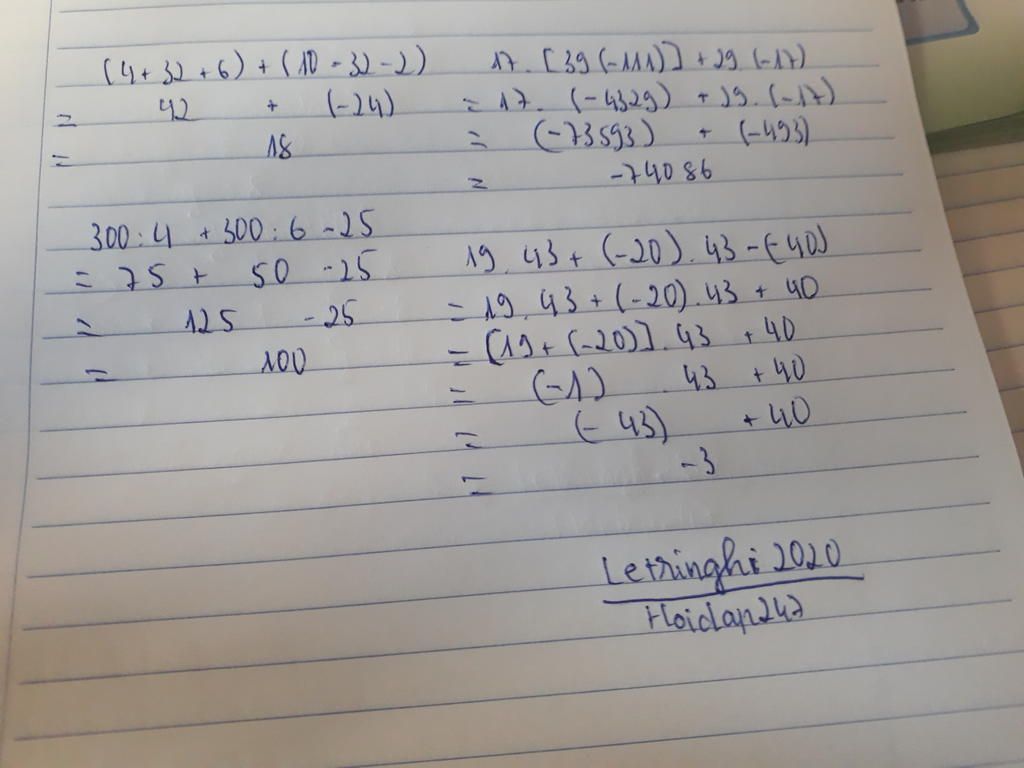 (4+32+6) + (10-32-2)
= 42 + (-24)
= 18
300:4 + 300:6 -25
= 75 + 50 -25
= 125 -25
= 100
17. [39(-111)] + 29.(-17)
= 17. (-4329) + 29.(-17)
= (-73593) + (-493)
= -74086
19.43 + (-20).43 - (-40)
= 19.43 + (-20).43 + 40
= [19 + (-20)].43 + 40
= (-1) 43 + 40
= (-43) + 40
= -3
Letringhi 2020
Hoidap247